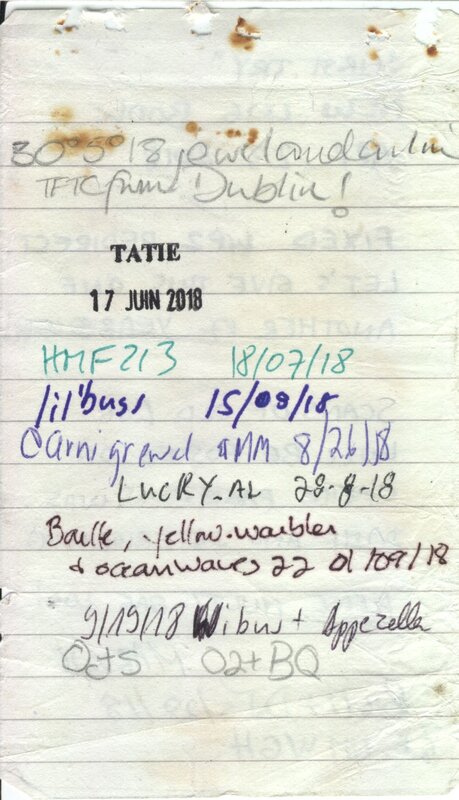 30°5°18
TFTC from Dublin!
TATIE
17 JUIN 2018
HMF213 18/07/18
lil'buss 15/08/18
8/26/18
LUCKY_AL 28-8-18
yellow.warbler
+ oceanwaves 22 01/09/18
9/19/18 Wibus + Appezella
O2+BQ